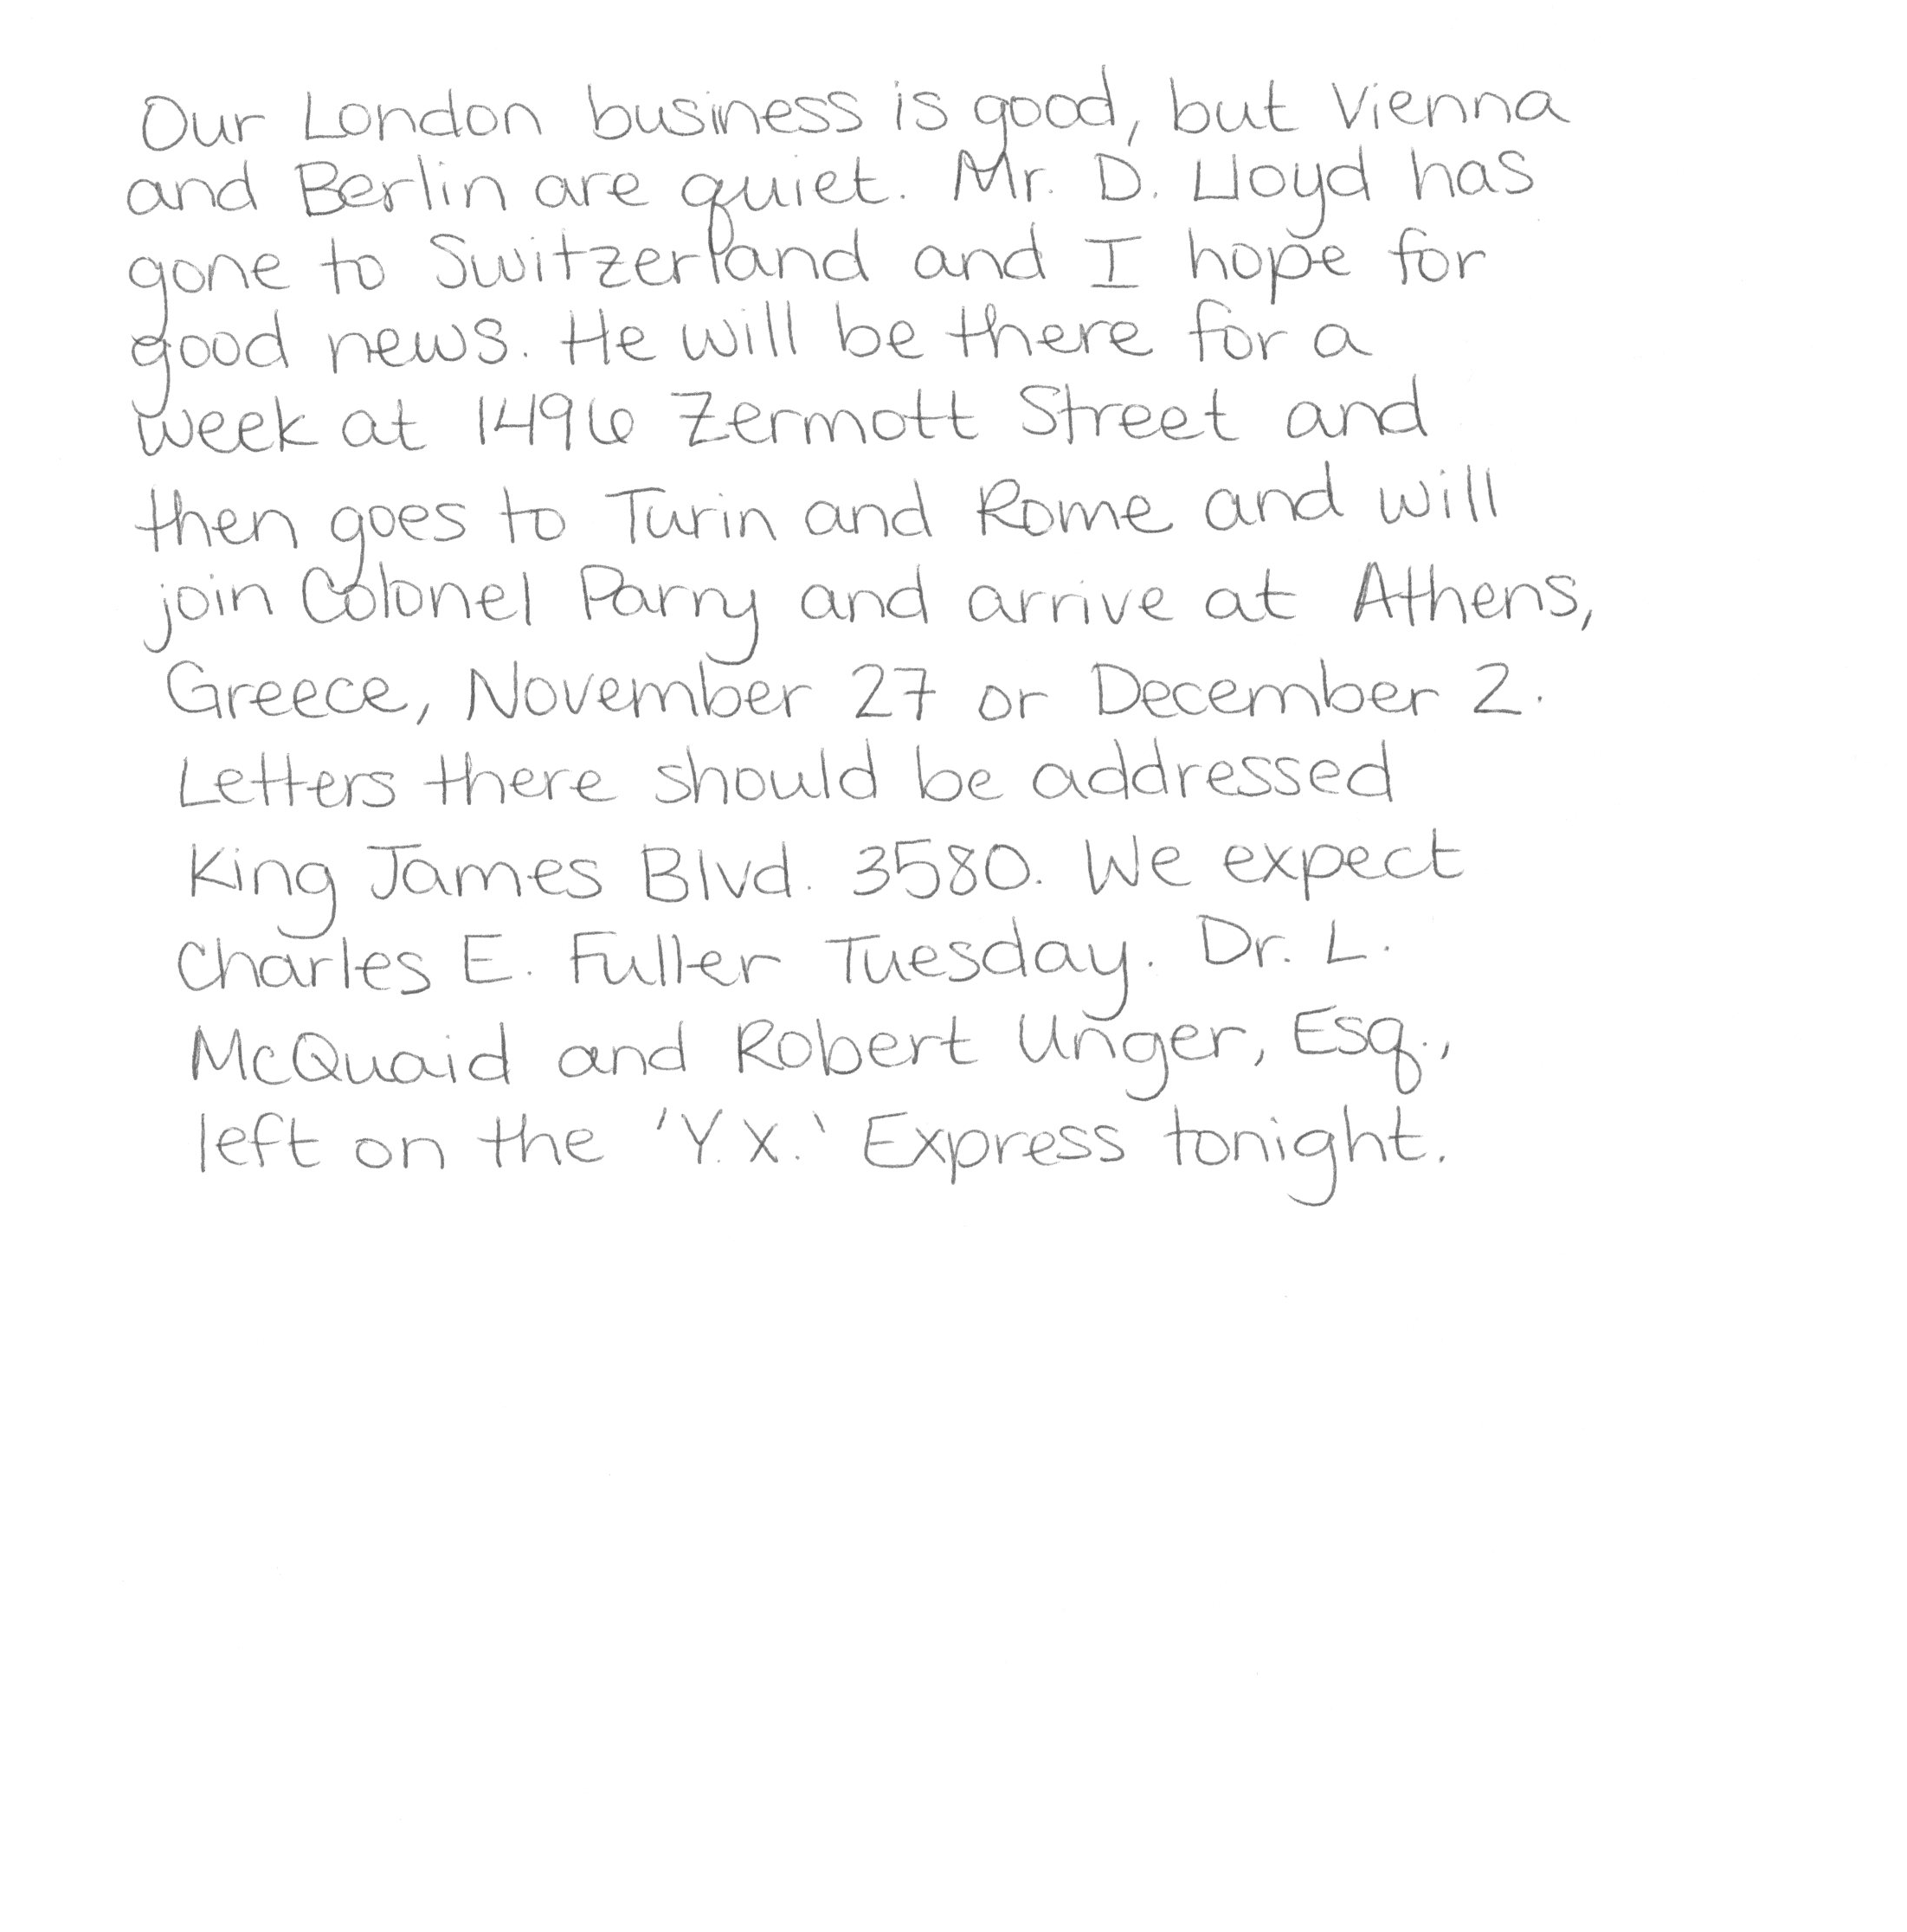 Our London business is good, but Vienna
and Berlin are quiet. Mr. D. Lloyd has
gone to Switzerland and I hope for
good news. He will be there for a
week at 1496 Zermott Street and
then goes to Turin and Rome and will
join Colonel Parry and arrive at Athens,
Greece, November 27 or December 2.
Letters there should be addressed
King James Blvd. 3580. We expect
Charles E. Fuller Tuesday. Dr. L.
McQuaid and Robert Unger, Esq.,
left on the 'Y.X.' Express tonight.